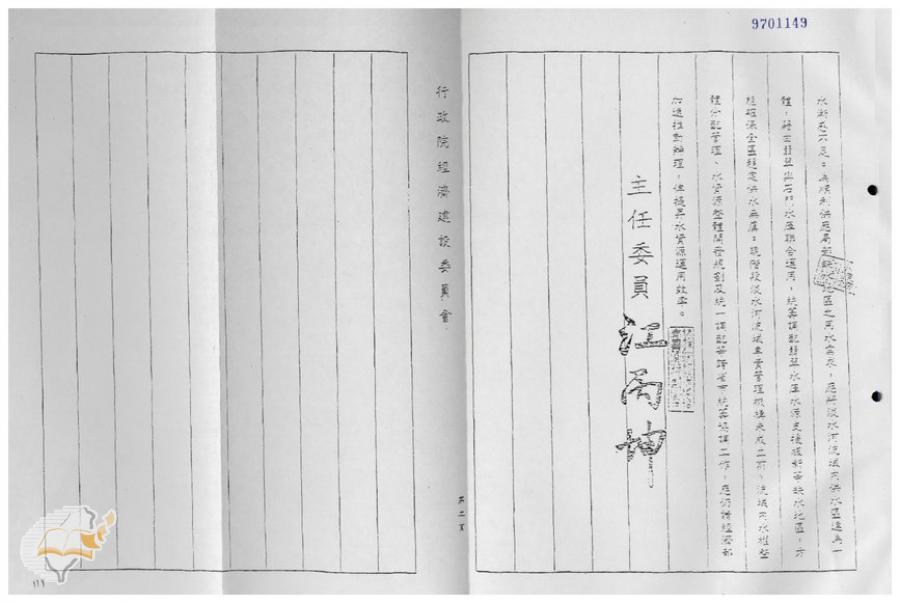 9701149
水漸感不足。為順利供應局部缺水地區之用水需求，應將淡水河流域內供水區連為一
體，藉由翡翠與石門水庫聯合運用，統籌調配翡翠水庫水源支援板新等缺水地區，方
能確保全區趨處供水無虞。現階段淡水河流域專責管理機構未成立前，流域內水權整
體分配管理、水資源整體開發規劃及統一調配等跨省市統籌協調工作，應仍請經濟部
加速推動辦理，俾提昇水資源運用效率。
主任委員江丙坤
行政院經濟建設委員會
第二頁